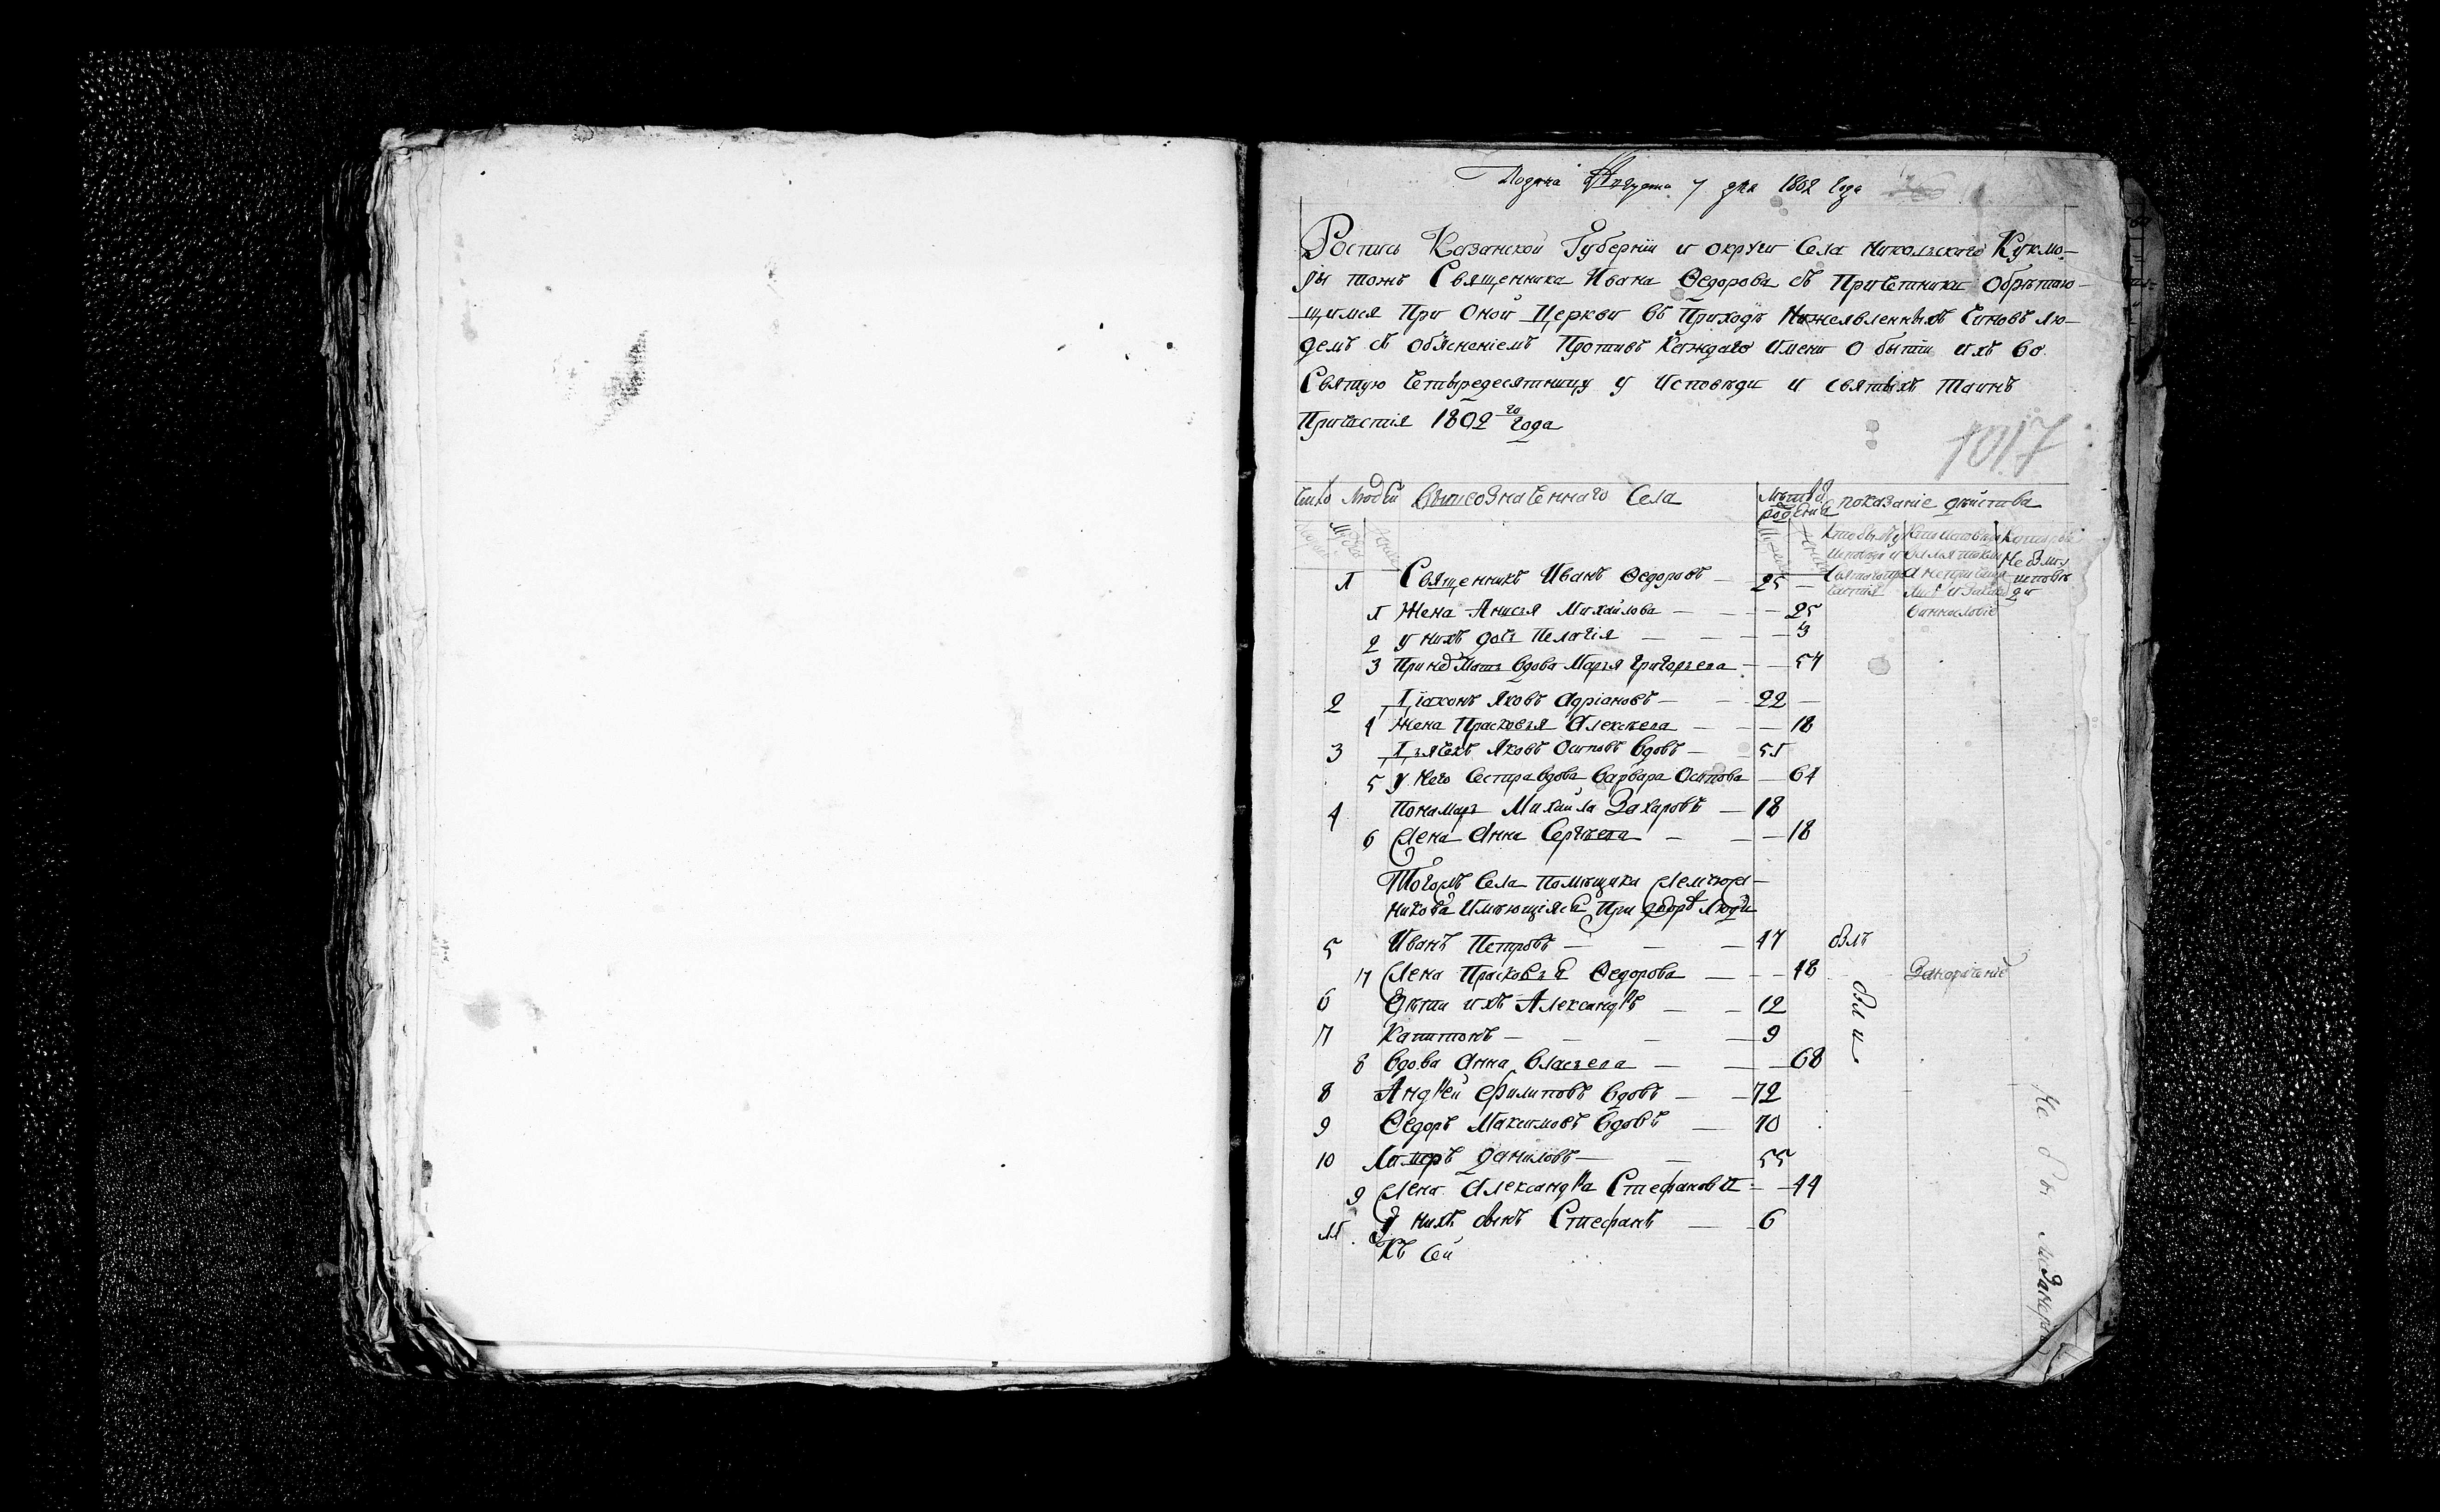 Подана Августа 7 дня 1802 года
Роспись Казанской Губернїи и округи Села Никольскаго Кукмо-
ры тожъ Священника Ивана Ѳедорова съ Причетники Обрѣтаю-
щимся При Оной Церкви въ Приходѣ Нижеявленныхъ Чиновъ лю-
демъ съ обясненіемъ Противъ Каждаго имени О бытіи ихъ во
Святую Четыредесятницу у Исповѣди и святыхъ таинъ
Причастія 1802 го года
1017
Число Людей Вышеозначеннаго Села Лѣта от рождения показаніе действа
1 Священникъ Иванъ Ѳедоровъ — 25 —
1 Жена Анисья Михайлова — — — 25
2 у нихъ дочь Пелагія — — — 3
3 При нем Мать вдова Марья Григорьева — — 54
2 Дїаконъ Яковъ Адріановъ — — 22 —
4 Жена Прасковья Алексѣева — — 18
3 Дьячекъ Яковъ Осиповъ вдовъ — 51
5 у Него Сестра вдова Варвара Осипова — 64
4 Понамарь Михаила Захаровъ — 18
6 Жена Анна Сергѣева — — 18
Тогожъ Села Помѣщика
Имѣющіяся При дворѣ Люди
5 Иванъ Петровъ — — — 47 былъ
7 Жена Прасковья Ѳедорова — — — 48
6 Дѣти ихъ Александръ — — 12 были
7 Капитонъ — — — — 9
8 Вдова Анна Власьева — — — 68
8 Андрей Филиповъ вдовъ — — 72
9 Ѳедоръ Максимовъ вдовъ — 70
10 Даниловъ — — 55
9 Жена Александра Стефанова — — 44
11 у нихъ сынъ Стефанъ — 6
Къ сей
Не были